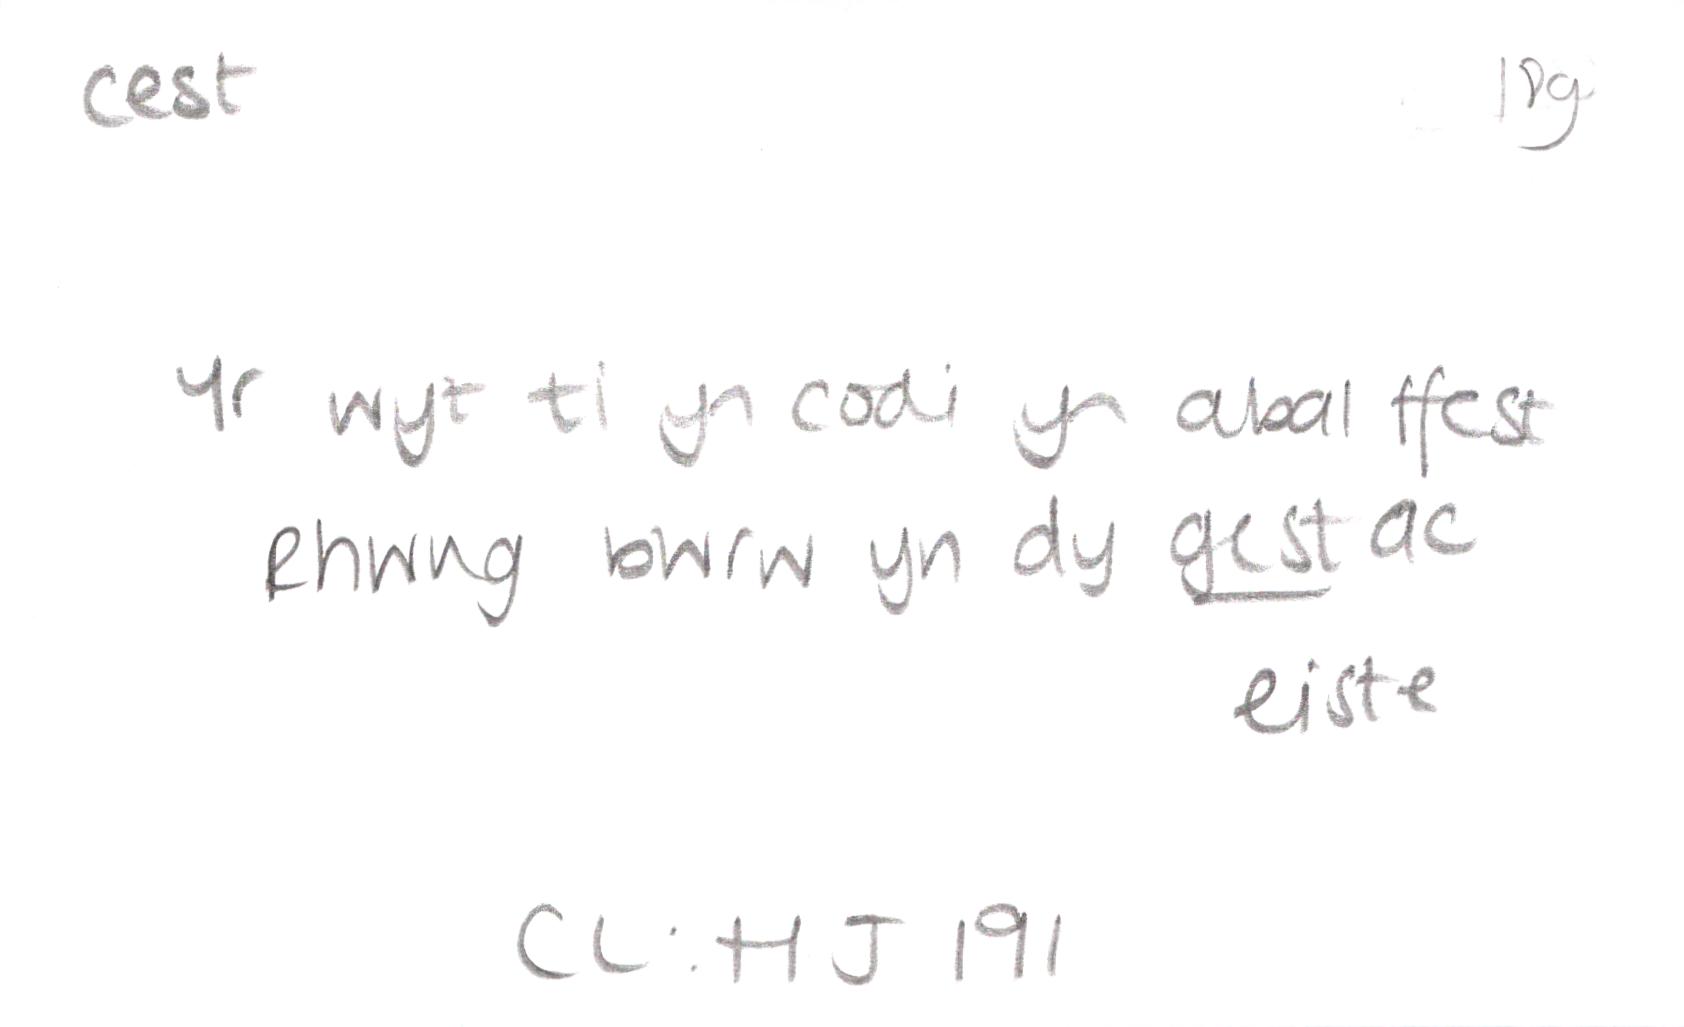 cest 18g
Yr wyt ti yn codi yn abal ffest
Rhwng bwrw yn dy gest ac
eiste
CL:HJ 191